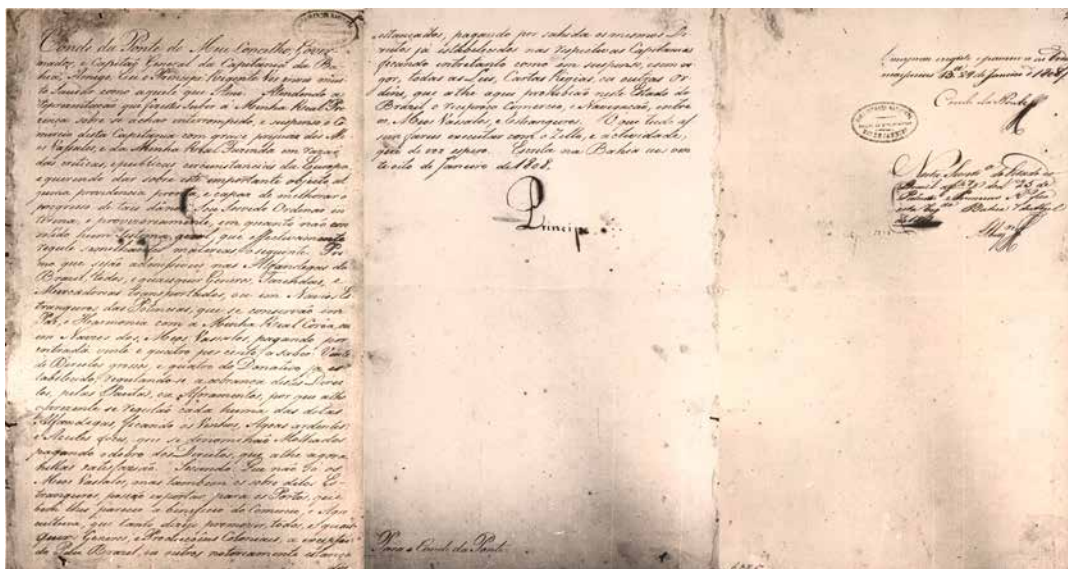 Conde da Ponte do Meu Concelho, Gover-
nador, e Capitaõ General da Capitania da Ba-
hia; Amigo. Eu o Principe Regente vos envio mui-
to Saudar como aquele que Amo. Attendendo a
representaçaõ que fizestes subir a Minha Real Pre-
zença sobre se achar interrompido, e suspenso o Co-
mercio desta Capitania com grave prejuizo dos Me-
os Vassalos, e da Minha Real Fazenda em razaõ
das criticas, e publicas circunstancias da Europa
e querendo dar sobre este importante objeto al-
guma providencia prompta, e capaz de melhorar o
progresso de taes danos: Sou Servido Ordenar in-
terina, e provisoriamente, em quanto naõ con-
solido hum Sistema geral, que effectivamente
regule semelhantes materias o seguinte. Pri-
mo que sejaõ admissiveis nas Alfandegas do
Brazil todos, e quaesquer Generos, Fazendas, e
Mercadorias transportadas, ou em Navios Es-
trangeiros das Potencias, que se conservaõ em
Paz, e Harmonia com a Minha Real Coroa, ou
em Navios dos Meos Vassalos, pagando por
entrada vinte e quatro por cento: a saber: Vinte
de Direitos grossos, e quatro do Donativo já es-
tabelecido, regulando-se a cobrança destes Direi-
tos pelas Pautas, ou Aforamentos, por que athe
o prezente se regulaõ cada huma das ditas
Alfandegas ficando os Vinhos, Agoas ardentes
e Azeites doces, que se denominaõ Molhados
pagando o dobro dos Direitos, que athe agora
nellas satisfaziaõ. Secundo: Que naõ só os
Meos Vassalos, mas tambem os sobreditos Es-
trangeiros possaõ exportar para os Portos, que
bem lhes parecer a beneficio do Comercio, e Agri-
cultura, que tanto dezejo promover, todos, e quaes-
quer Generos, e Producçoens Coloniaes, a excepçaõ
do Páu Brazil, ou outros notoriamente estanca-
dos
estancados, pagando por sahida os mesmos Di-
reitos já estabelecidos nas respectivas Capitanias
ficando entretanto como em suspenso, e sem vi-
gor, todas as Leis, Cartas Regias, ou outras Or-
dens, que athe aqui prohibiaõ neste Estado do
Brazil o reciproco Comercio, e Navegaçaõ, entre
os Meus Vassalos, e Estrangeiros. O que tudo as-
sim fareis executar com o Zello, e actividade,
que de vos espero. Escrita na Bahia aos vin-
te oito de Janeiro de 1808,
Principe
Para o Conde da Ponte
Cumprase, registe,
29 de Janeiro de 1808
Conde da Ponte